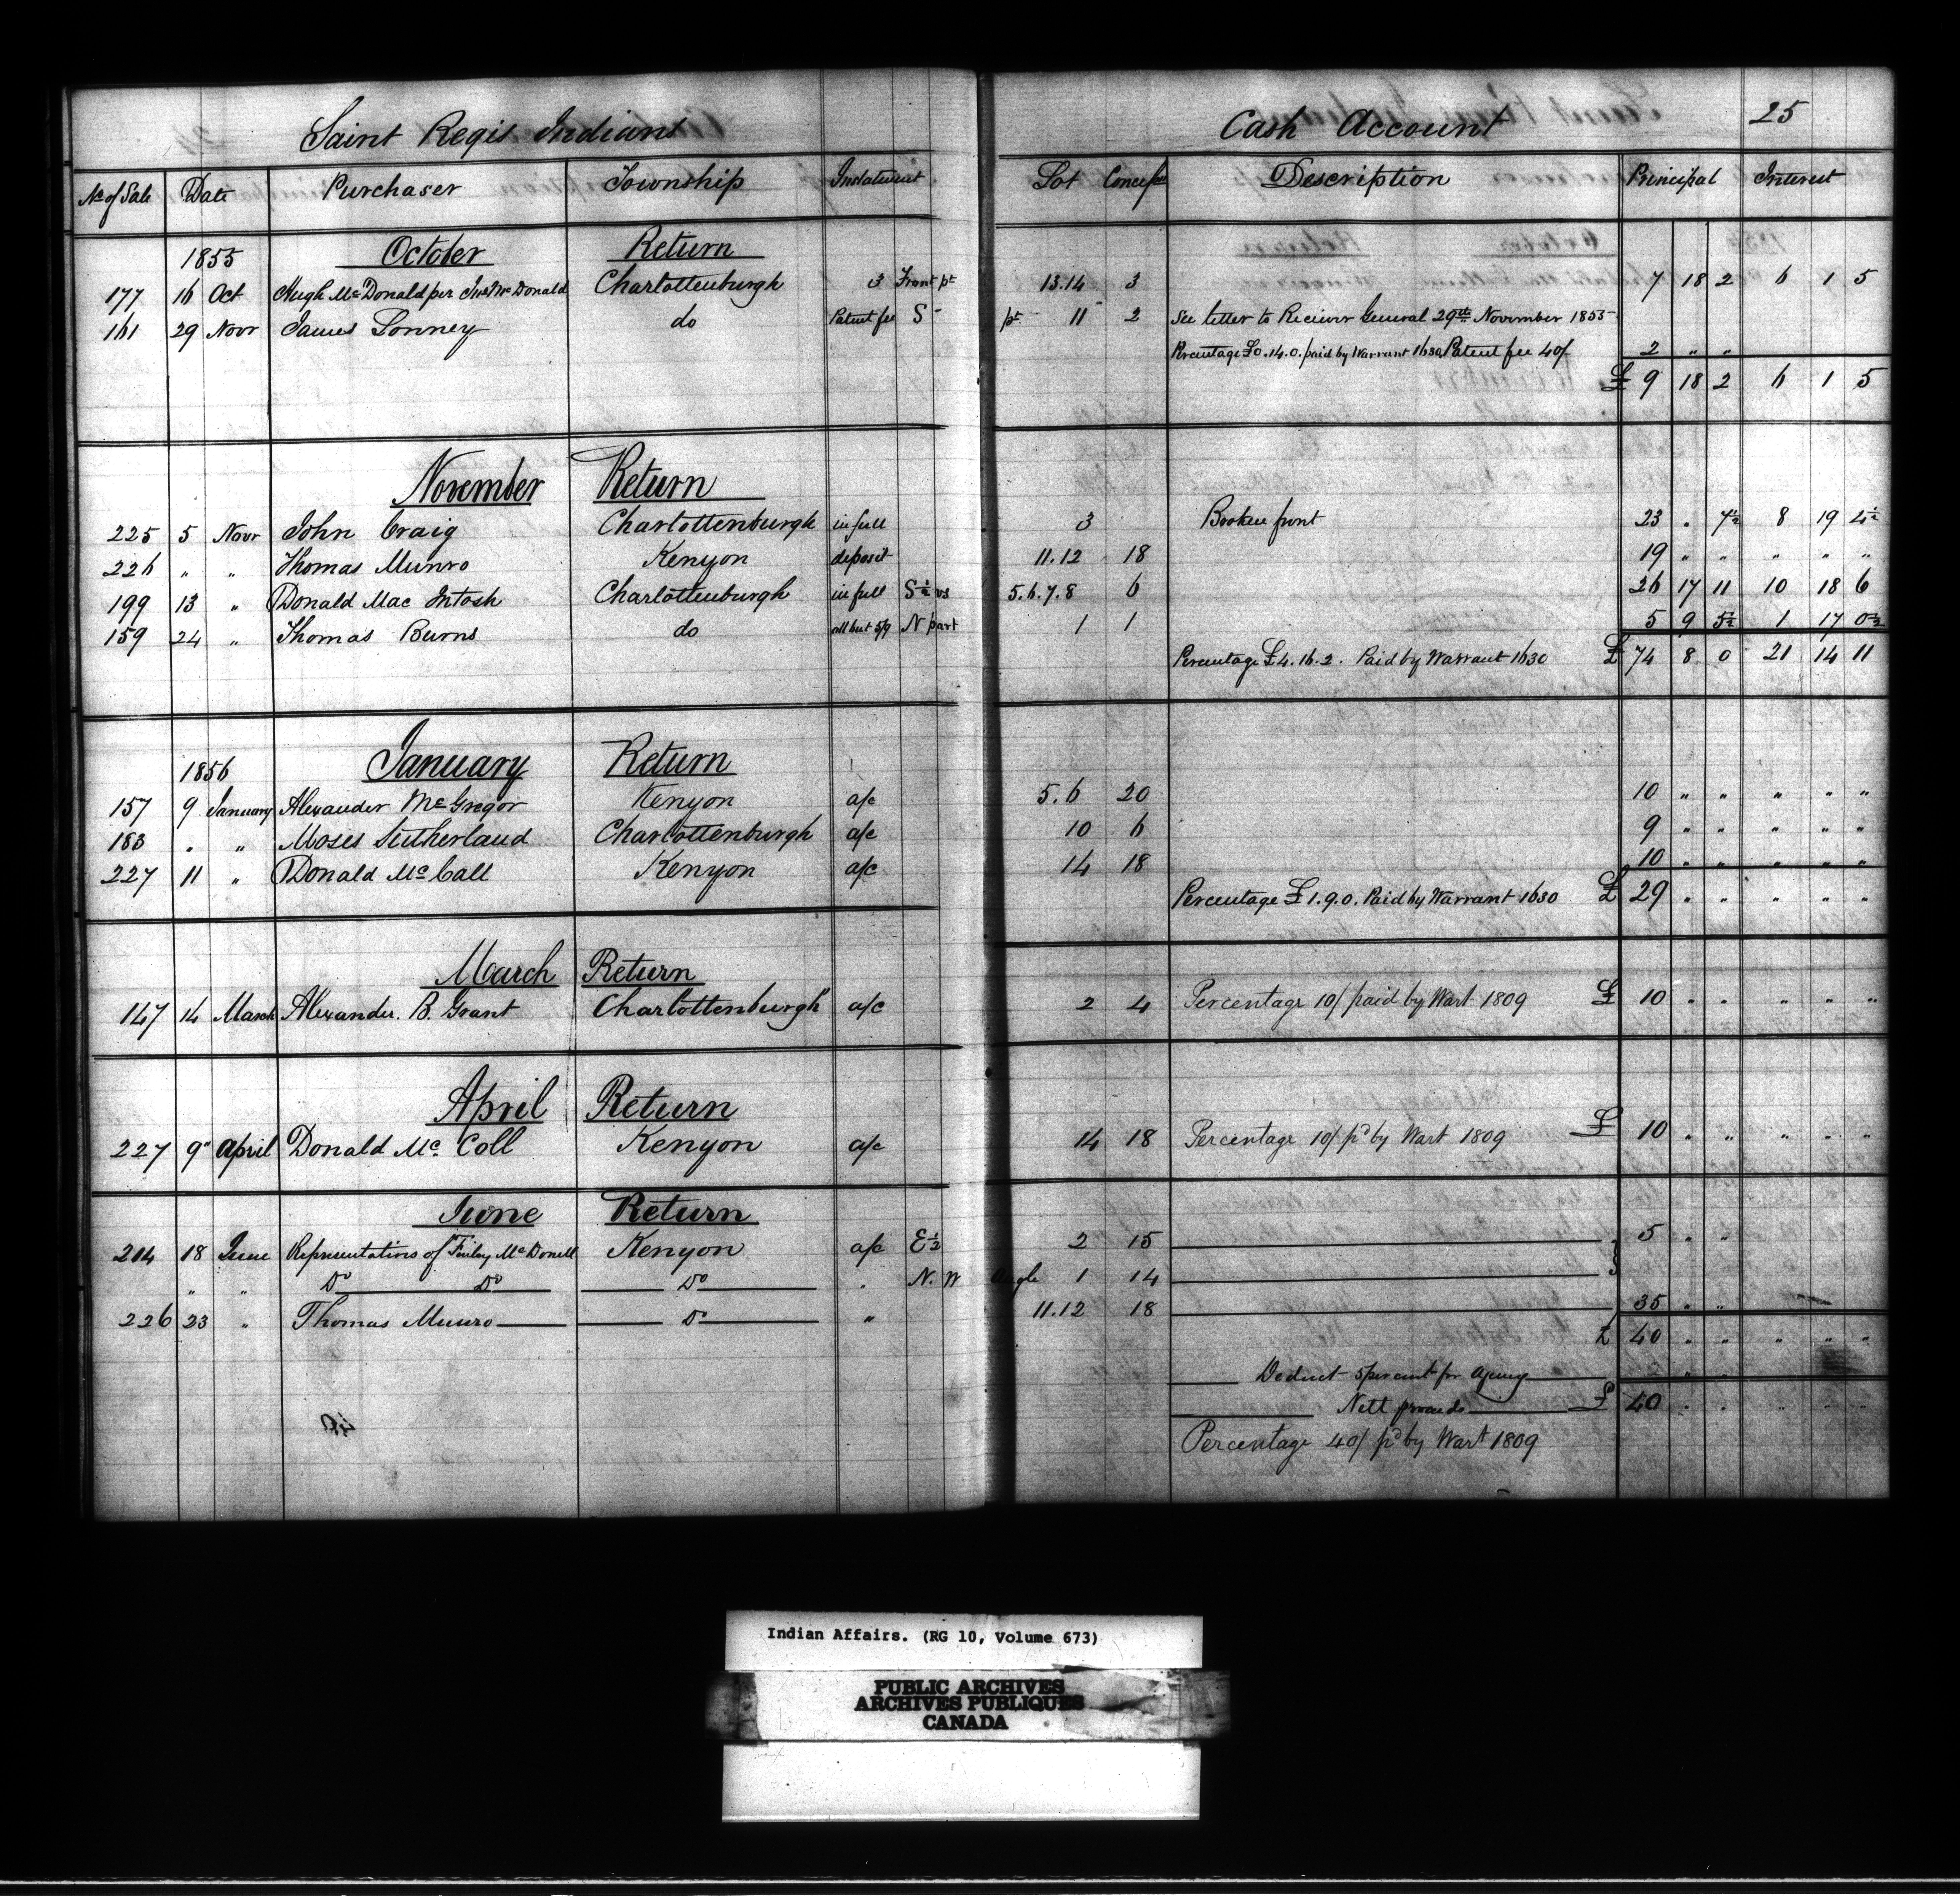 Saint Regis Indians Cash Account 25
No of Sale Date Purchaser Township Instalment Lot Concessn Description Principal Interest
1855 October Return
177 16 Oct Hugh Mc Donald per Jno Mc Donald Charlottenburgh 3 Front pt 13.14 3 7 18 2 6 1 5
161 29 Novr James do Patent fee S pt 11 2 See letter to Reciever General 29th November 1855
Percentage £0.14.0. paid by Warrant 1630. Patent fee 40/ 2 " "
£ 9 18 2 6 1 5
November Return
225 5 Novr John Craig Charlottenburgh in full 3 Broken front 23 " 7½ 8 19 4½
226 " " Thomas Munro Kenyon deposit 11.12 18 19 " " " " "
199 13 " Donald Mac Intosh Charlottenburgh in full S½ vs 5.6.7.8 6 26 17 11 10 18 6
159 24 " Thomas Burns do all but 5/9 N part 1 1 5 9 5½ 1 17 0½
Percentage £4.16.2. Paid by Warrant 1630 £ 74 8 0 21 14 11
1856 January Return
157 9 January Alexander Mc Gregor Kenyon a/c 5.6 20 10 " " " " "
183 " " Moses Sutherland Charlottenburgh a/c 10 6 9 " " " " "
227 11 " Donald Mc Call Kenyon a/c 14 18 10 " " " " "
Percentage £1.9.0. Paid by Warrant 1630 £ 29 " " " " "
March Return
147 14 March Alexander. B. Grant Charlottenburgh a/c 2 4 Percentage 10/ paid by Wart 1809 £ 10 " " " " "
April Return
227 9" April Donald Mc Coll Kenyon a/c 14 18 Percentage 10/ pd by Wart 1809 £ 10 " " " " "
June Return
214 18 June Representatives of Finlay Mc Donell Kenyon a/c E½ 2 15 5 " "
" " Do Do Do " N.W Angle 1 14
226 23 " Thomas Munro Do " 11.12 18 35 " "
£ 40 " " " " "
Deduct 5 per cent for Agency 2 " "
Nett proceeds £ 40 " " " " "
Percentage 40/ pd by Wart 1809
Indian Affairs. (RG 10, Volume 673)
PUBLIC ARCHIVES
ARCHIVES PUBLIQUES
CANADA